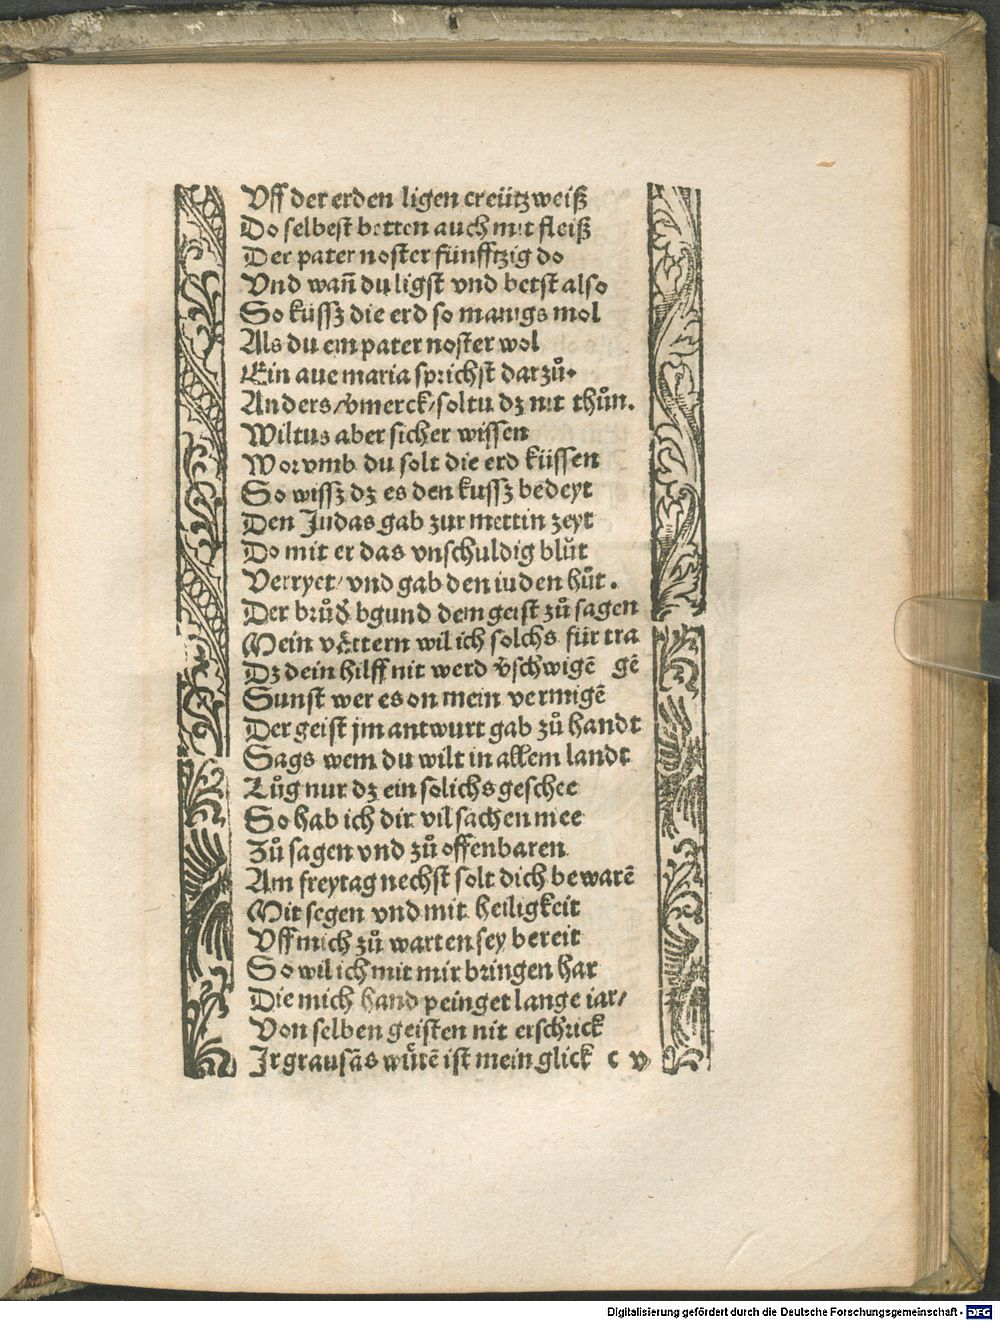 Vff der erden ligen creützweiß
Do selbest betten auch mit fleiß
Der pater noster fünfftzig do
Vnd wañ du ligst vnd betst also
So küssʒ die erd so manigs mol
Als du ein pater noster wol
Ein aue maria sprichst darzů.
Anders/v̄merck/soltu dʒ nit thůn.
Wiltus aber sicher wissen
Worvmb du solt die erd küssen
So wissʒ dʒ es den kussʒ bedeyt
Den Judas gab zur mettin zeyt
Do mit er das vnschuldig blůt
Verryet/vnd gab den iuden hůt.
Der brůd̄ bgund dem geist zů sagen
Mein vǒttern wil ich solchs für tra
Dʒ dein hilff nit werd v̄schwigē gē
Sunst wer es on mein vermigē
Der geist jm antwurt gab zů handt
Sags wem du wilt in allem landt
Lůg nur dʒ ein solichs geschee
So hab ich dir vil sachen mee
Zů sagen vnd zů offenbaren
Am freytag nechst solt dich bewarē
Mit segen vnd mit heiligkeit
Vff mich zů warten sey bereit
So wil ich mit mir bringen har
Die mich hand peinget lange iar/
Von selben geisten nit erschrick
Jr grausās wůtē ist mein glick c v
Digitalisierung gefördert durch die Deutsche Forschungsgemeinschaft - DFG